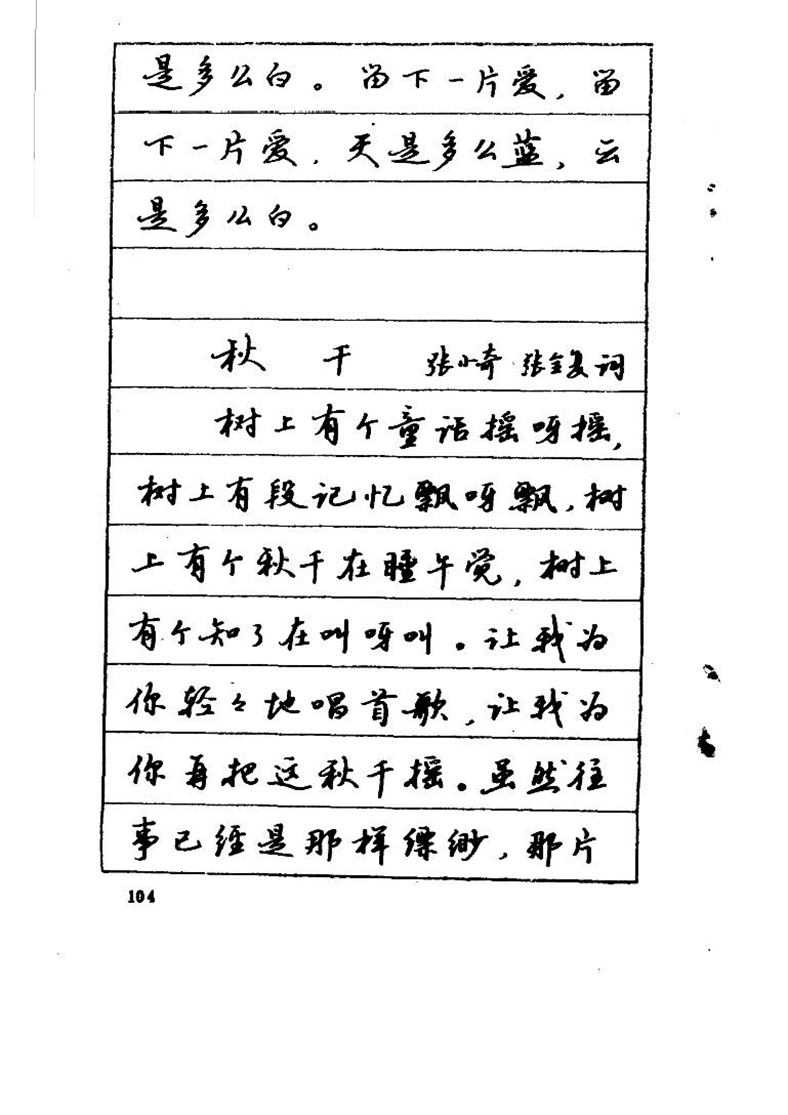 是多么白。留下一片爱，留
下一片爱，天是多么蓝，云
是多么白。
秋千 张小奇 张全复词
树上有个童话摇呀摇，
树上有段记忆飘呀飘，树
上有个秋千在睡午觉，树上
有个知了在叫呀叫。让我为
你轻々地唱首歌，让我为
你再把这秋千摇。虽然往
事已经是那样缥缈，那片
104